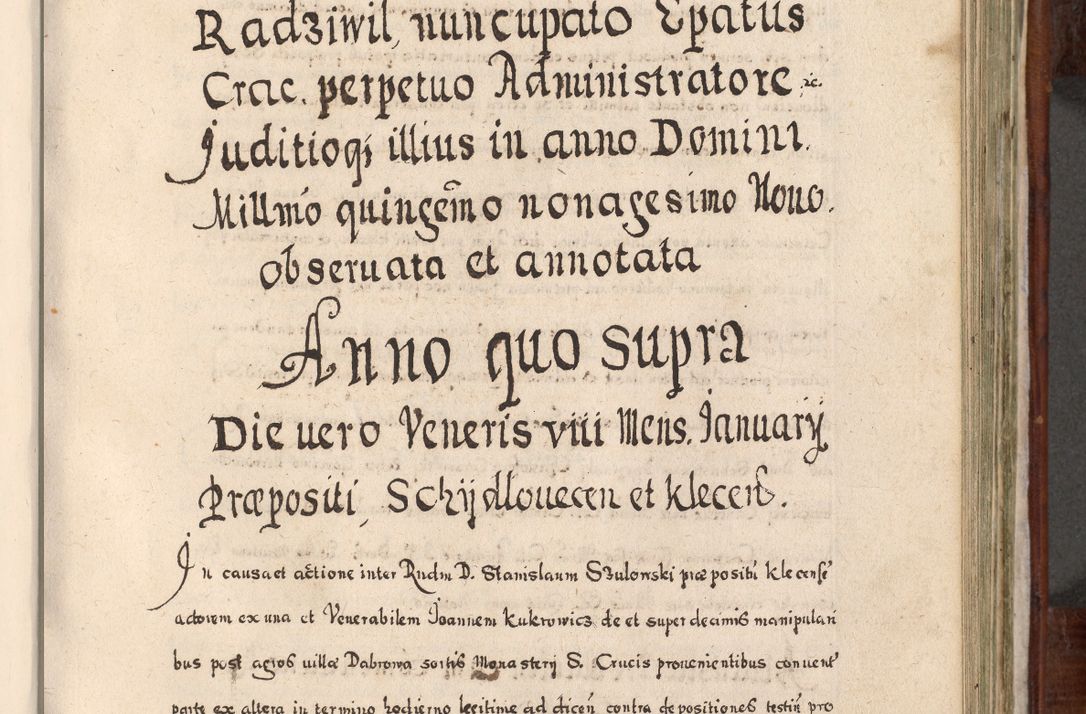 Radziwil, nuncupato Epatus
Crac. perpetuo Administratore &c.
Juditioq; illius in anno Domini.
Millmo quingemo nonagesimo Nouo.
obseruata et annotata
Anno quo supra
Die uero Veneris viii Mens. Januarij
Præpositi, Schijdlouecen et Klecen.
In causa et actione inter Rndm D. Stanislaum Szulowski præpositi Klecense
actorem ex una et Venerabilem Joannem Kukrowicz de et super decimis manipulari
bus post agros uillæ Dabrowa sortis Monasterij S. Crucis prouenientibus conuent
parte ex altera in termino hodierno legitime ad dicen contra depositiones testiu pro